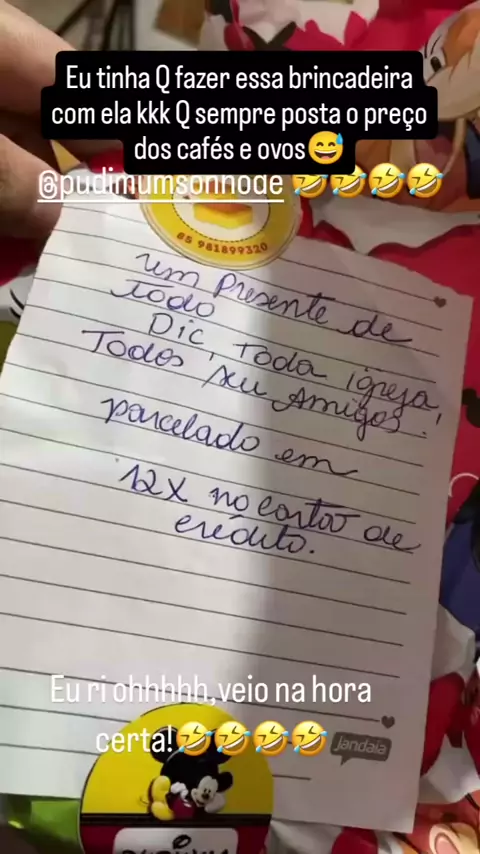 Eu tinha Q fazer essa brincadeira
com ela kkk Q sempre posta o preço
dos cafés e ovos😅
@pudimumsonhode 🤣🤣🤣🤣
85 981899320
um presente de
todo
Dic, toda igreja,
Todos seu Amigos.
parcelado em
12X no cartão de
crédito.
Eu ri ohhhhh,veio na hora
certa!🤣🤣🤣🤣
Jandaia